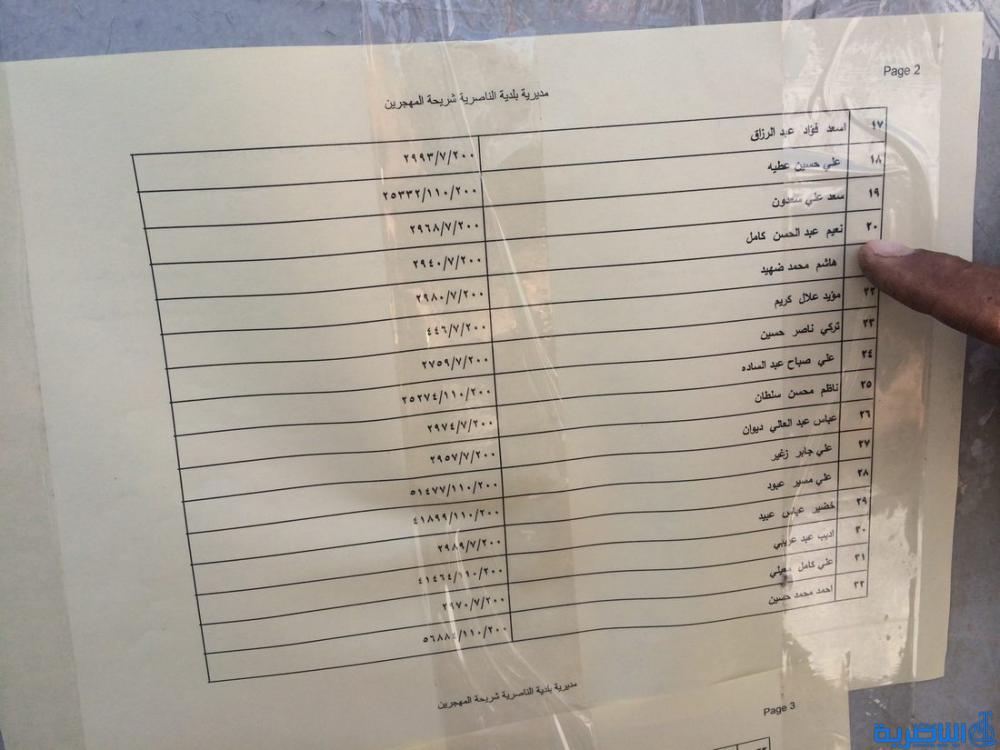 Page 2
مديرية بلدية الناصرية شريحة المهجرين
١٧ اسعد فؤاد عبد الرزاق ٢٩٩٣/٧/٢٠٠
١٨ علي حسين عطيه ٢٥٣٣٢/١١٠/٢٠٠
١٩ سعد علي سعدون ٢٩٦٨/٧/٢٠٠
٢٠ نعيم عبد الحسن كامل ٢٩٤٠/٧/٢٠٠
هاشم محمد ضهيد ٢٩٨٠/٧/٢٠٠
٢٢ مؤيد علال كريم ٤٤٦/٧/٢٠٠
٢٣ تركي ناصر حسين ٢٧٥٩/٧/٢٠٠
٢٤ علي صباح عبد الساده ٢٥٢٧٤/١١٠/٢٠٠
٢٥ ناظم محسن سلطان ٢٩٧٤/٧/٢٠٠
٢٦ عباس عبد العالي ديوان ٢٩٥٧/٧/٢٠٠
٢٧ علي جابر زغير ٥١٤٧٧/١١٠/٢٠٠
٢٨ علي مسير عبود ٤١٨٩٩/١١٠/٢٠٠
٢٩ خضير عباس عبيد ٢٩٨٩/٧/٢٠٠
٣٠ اديب عبد عريبي ٤١٤٦٤/١١٠/٢٠٠
٣١ علي كامل معيلي ٢٩٧٠/٧/٢٠٠
٣٢ احمد محمد حسين ٥٦٨٨٤/١١٠/٢٠٠
مديرية بلدية الناصرية شريحة المهجرين
Page 3
الناصرية